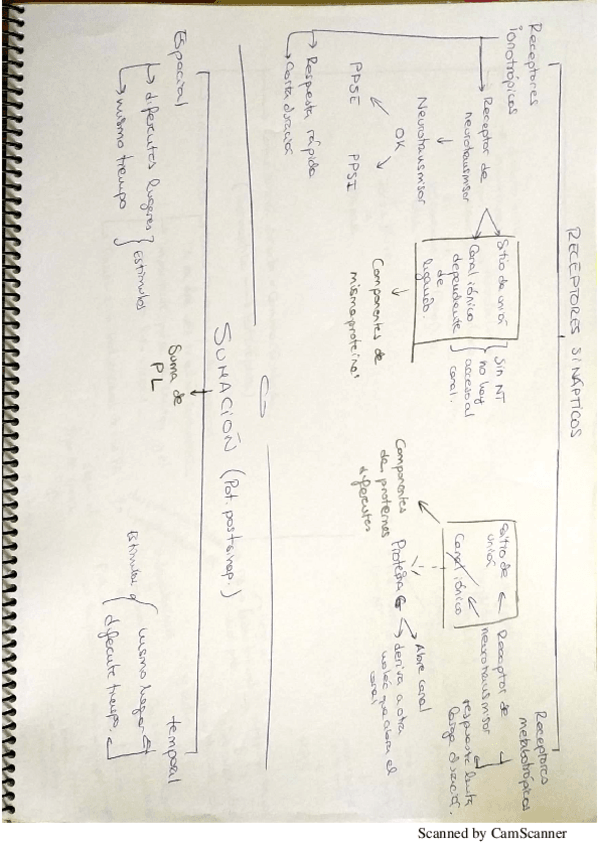 RECEPTORES SINÁPTICOS
Receptores
ionotrópicos
Receptor de
neurotransmisor
Sitio de unión
Canal iónico
dependiente
de
ligando.
Sin NT
no hay
acceso al
canal.
Neurotransmisor
OK
PPSE
PPSI
Componentes de
misma proteína
Respuesta rápida
Corta duración
Receptores
metabotrópicos
Receptor de
neurotransmisor
respuesta lenta
larga duración.
Sitio de
unión
Canal iónico
Componentes
de proteínas
diferentes
Proteína G
Abre canal
deriva a otra
que abra el
canal
SUMACIÓN (Pot. postsinap.)
Suma de
PL
Espacial
diferentes lugares
mismo tiempo
Estímulos
temporal
mismo lugar
diferente tiempo.
Estímulos
Scanned by CamScanner